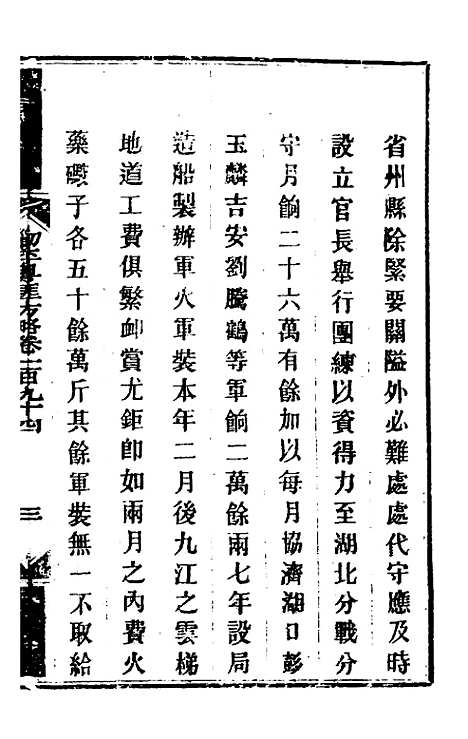 省州縣除緊要關隘外必難處處代守應及時
設立官長舉行團練以資得力至湖北分戰分
守月餉二十六萬有餘加以每月協濟湖口彭
玉麟吉安劉騰鶴等軍餉二萬餘兩七年設局
造船製辦軍火軍裝本年二月後九江之雲梯
地道工費俱繁卹賞尤鉅卽如兩月之內費火
藥礮子各五十餘萬斤其餘軍裝無一不取給
方略卷一百九十四
三